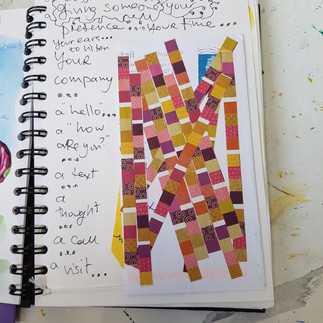 giving someone your
presence... your time...
your ears...
to listen
your
company
a "hello"...
a "how
are you?"
....
a text
...
a
thought
...
a call
...
a visit...